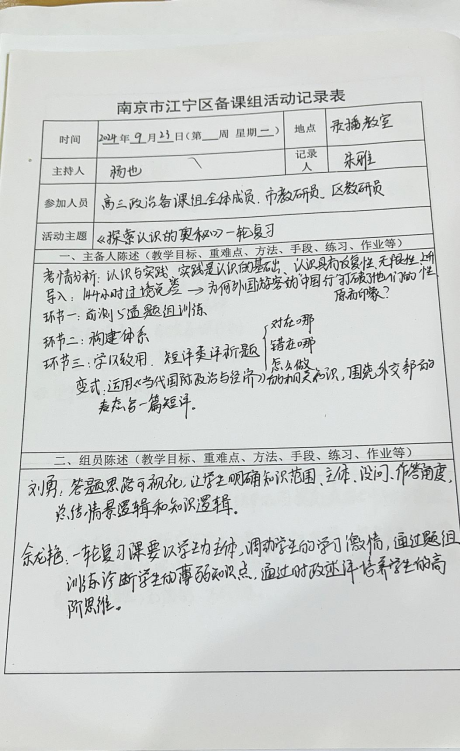 南京市江宁区备课组活动记录表
时间 2024年9月23日(第 周 星期一) 地点 录播教室
主持人 杨也 记录人 朱雅
参加人员 高三政治备课组全体成员、市教研员、区教研员
活动主题 《探索认识的奥秘》一轮复习
一、主备人陈述(教学目标、重难点、方法、手段、练习、作业等)
考情分析:认识与实践、实践是认识的基础、认识具有反复性、无限性、上升性
导入:144小时过境免签→为何外国游客的"中国行"打破了他们的
原有印象?
环节一:前测5道题组训练
环节二:构建体系
环节三:学以致用 短评类评析题 对在哪
错在哪
怎么做
变式:运用《当代国际政治与经济》的相关知识,围绕外交部的
表态写一篇短评。
二、组员陈述(教学目标、重难点、方法、手段、练习、作业等)
刘勇:答题思路可视化,让学生明确知识范围、主体、设问、作答角度,
总结情景逻辑和知识逻辑。
余龙艳:一轮复习课要以学生为主体,调动学生的学习激情,通过题组
训练诊断学生的薄弱知识点,通过时政述评培养学生的高
阶思维。